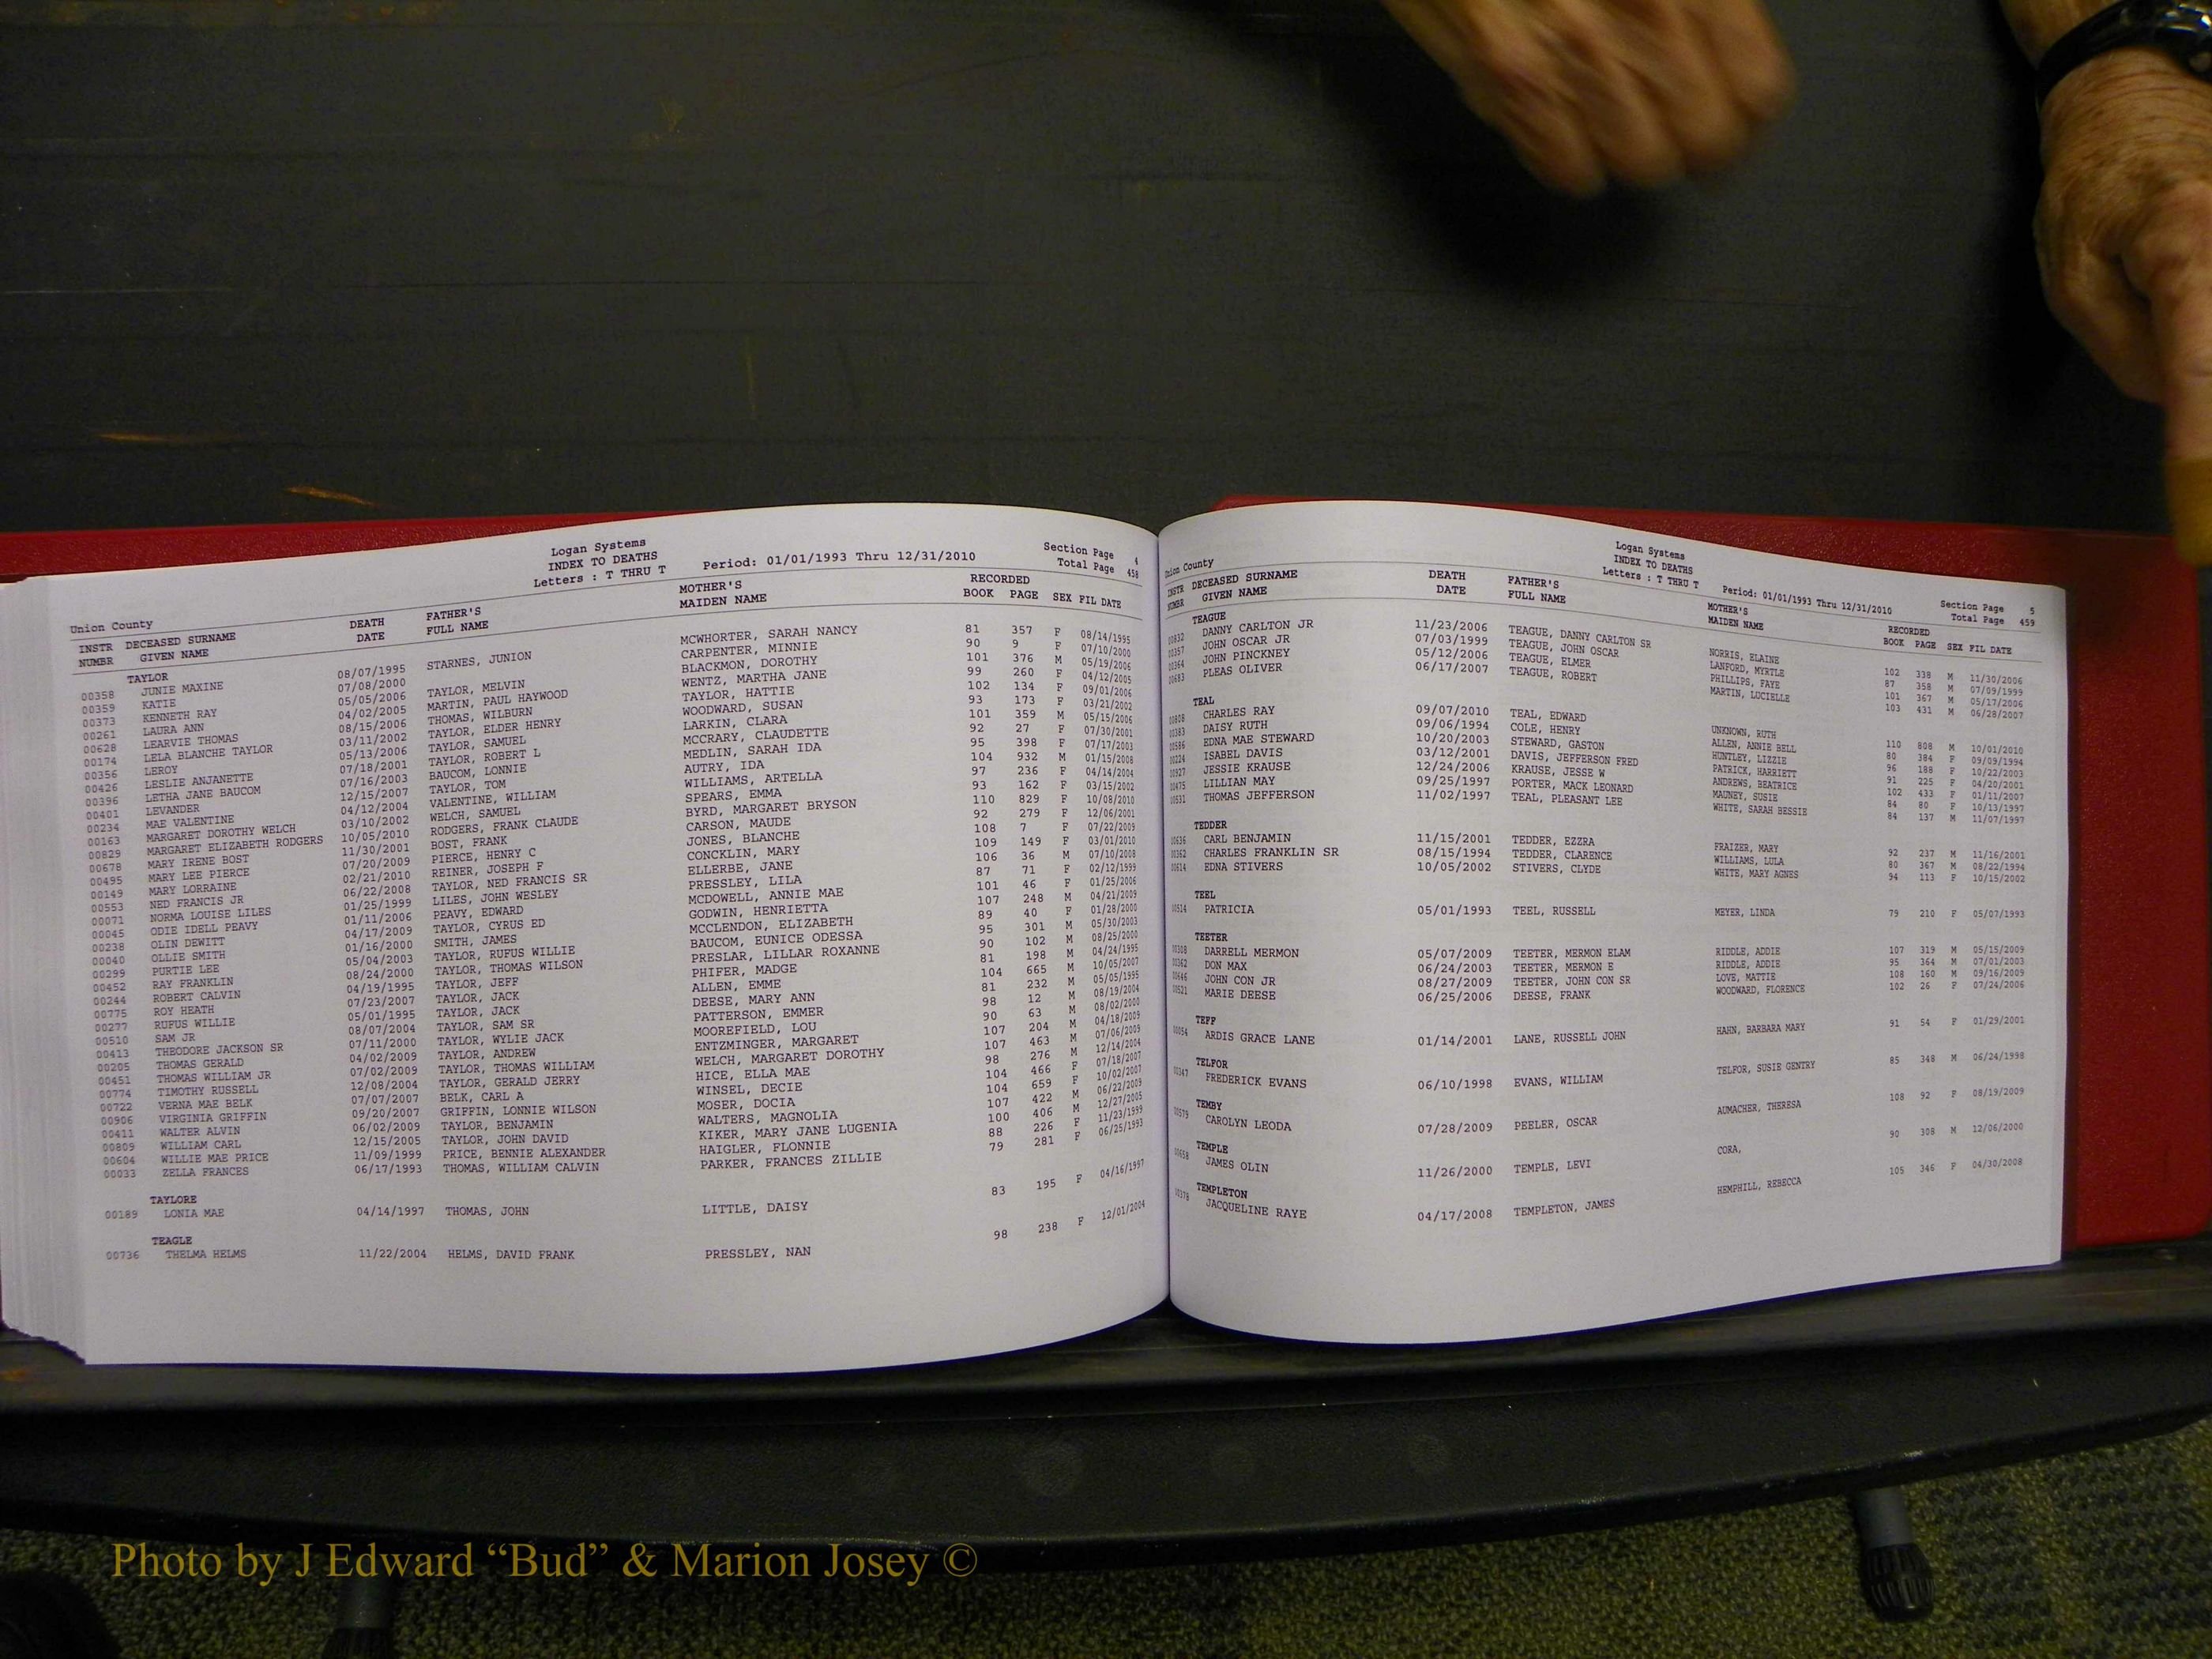 Union County
Logan Systems
INDEX TO DEATHS
Letters : T THRU T Period: 01/01/1993 Thru 12/31/2010
Section Page 4
Total Page 458
INSTR DECEASED SURNAME DEATH FATHER'S MOTHER'S RECORDED
NUMBR GIVEN NAME DATE FULL NAME MAIDEN NAME BOOK PAGE SEX FIL DATE
TAYLOR
00358 JUNIE MAXINE 08/07/1995 STARNES, JUNION MCWHORTER, SARAH NANCY 81 357 F 08/14/1995
00359 KATIE 07/08/2000 CARPENTER, MINNIE 90 9 F 07/10/2000
00373 KENNETH RAY 05/05/2006 TAYLOR, MELVIN BLACKMON, DOROTHY 101 376 M 05/19/2006
00261 LAURA ANN 04/02/2005 MARTIN, PAUL HAYWOOD WENTZ, MARTHA JANE 99 260 F 04/12/2005
00628 LEARVIE THOMAS 08/15/2006 THOMAS, WILBURN TAYLOR, HATTIE 102 134 F 09/01/2006
00174 LELA BLANCHE TAYLOR 03/11/2002 TAYLOR, ELDER HENRY WOODWARD, SUSAN 93 173 F 03/21/2002
00356 LEROY 05/13/2006 TAYLOR, SAMUEL LARKIN, CLARA 101 359 M 05/15/2006
00426 LESLIE ANJANETTE 07/18/2001 TAYLOR, ROBERT L MCCRARY, CLAUDETTE 92 27 F 07/30/2001
00396 LETHA JANE BAUCOM 07/16/2003 BAUCOM, LONNIE MEDLIN, SARAH IDA 95 398 F 07/17/2003
00401 LEVANDER 12/15/2007 TAYLOR, TOM AUTRY, IDA 104 932 M 01/15/2008
00234 MAE VALENTINE 04/12/2004 VALENTINE, WILLIAM WILLIAMS, ARTELLA 97 236 F 04/14/2004
00163 MARGARET DOROTHY WELCH 03/10/2002 WELCH, SAMUEL SPEARS, EMMA 93 162 F 03/15/2002
00829 MARGARET ELIZABETH RODGERS 10/05/2010 RODGERS, FRANK CLAUDE BYRD, MARGARET BRYSON 110 829 F 10/08/2010
00678 MARY IRENE BOST 11/30/2001 BOST, FRANK CARSON, MAUDE 92 279 F 12/06/2001
00495 MARY LEE PIERCE 07/20/2009 PIERCE, HENRY C JONES, BLANCHE 108 7 F 07/22/2009
00149 MARY LORRAINE 02/21/2010 REINER, JOSEPH F CONCKLIN, MARY 109 149 F 03/01/2010
00553 NED FRANCIS JR 06/22/2008 TAYLOR, NED FRANCIS SR ELLERBE, JANE 106 36 M 07/10/2008
00071 NORMA LOUISE LILES 01/25/1999 LILES, JOHN WESLEY PRESSLEY, LILA 87 71 F 02/12/1999
00045 ODIE IDELL PEAVY 01/11/2006 PEAVY, EDWARD MCDOWELL, ANNIE MAE 101 46 F 01/25/2006
00238 OLIN DEWITT 04/17/2009 TAYLOR, CYRUS ED GODWIN, HENRIETTA 107 248 M 04/21/2009
00040 OLLIE SMITH 01/16/2000 SMITH, JAMES MCCLENDON, ELIZABETH 89 40 F 01/28/2000
00299 PURTIE LEE 05/04/2003 TAYLOR, RUFUS WILLIE BAUCOM, EUNICE ODESSA 95 301 M 05/30/2003
00452 RAY FRANKLIN 08/24/2000 TAYLOR, THOMAS WILSON PRESLAR, LILLAR ROXANNE 90 102 M 08/25/2000
00244 ROBERT CALVIN 04/19/1995 TAYLOR, JEFF PHIFER, MADGE 81 198 M 04/24/1995
00775 ROY HEATH 07/23/2007 TAYLOR, JACK ALLEN, EMME 104 665 M 10/05/2007
00277 RUFUS WILLIE 05/01/1995 TAYLOR, JACK DEESE, MARY ANN 81 232 M 05/05/1995
00510 SAM JR 08/07/2004 TAYLOR, SAM SR PATTERSON, EMMER 98 12 M 08/19/2004
00413 THEODORE JACKSON SR 07/11/2000 TAYLOR, WYLIE JACK MOOREFIELD, LOU 90 63 M 08/02/2000
00205 THOMAS GERALD 04/02/2009 TAYLOR, ANDREW ENTZMINGER, MARGARET 107 204 M 04/18/2009
00451 THOMAS WILLIAM JR 07/02/2009 TAYLOR, THOMAS WILLIAM WELCH, MARGARET DOROTHY 107 463 M 07/06/2009
00774 TIMOTHY RUSSELL 12/08/2004 TAYLOR, GERALD JERRY HICE, ELLA MAE 98 276 M 12/14/2004
00722 VERNA MAE BELK 07/07/2007 BELK, CARL A WINSEL, DECIE 104 466 F 07/18/2007
00906 VIRGINIA GRIFFIN 09/20/2007 GRIFFIN, LONNIE WILSON MOSER, DOCIA 104 659 F 10/02/2007
00411 WALTER ALVIN 06/02/2009 TAYLOR, BENJAMIN WALTERS, MAGNOLIA 107 422 M 06/22/2009
00809 WILLIAM CARL 12/15/2005 TAYLOR, JOHN DAVID KIKER, MARY JANE LUGENIA 100 406 M 12/27/2005
00604 WILLIE MAE PRICE 11/09/1999 PRICE, BENNIE ALEXANDER HAIGLER, FLONNIE 88 226 F 11/23/1999
00033 ZELLA FRANCES 06/17/1993 THOMAS, WILLIAM CALVIN PARKER, FRANCES ZILLIE 79 281 F 06/25/1993
TAYLORE
00189 LONIA MAE 04/14/1997 THOMAS, JOHN LITTLE, DAISY 83 195 F 04/16/1997
TEAGLE
00736 THELMA HELMS 11/22/2004 HELMS, DAVID FRANK PRESSLEY, NAN 98 238 F 12/01/2004
Union County
Logan Systems
INDEX TO DEATHS
Letters : T THRU T Period: 01/01/1993 Thru 12/31/2010
Section Page 5
Total Page 459
INSTR DECEASED SURNAME DEATH FATHER'S MOTHER'S RECORDED
NUMBR GIVEN NAME DATE FULL NAME MAIDEN NAME BOOK PAGE SEX FIL DATE
TEAGUE
00832 DANNY CARLTON JR 11/23/2006 TEAGUE, DANNY CARLTON SR NORRIS, ELAINE 102 338 M 11/30/2006
00357 JOHN OSCAR JR 07/03/1999 TEAGUE, JOHN OSCAR LANFORD, MYRTLE 87 358 M 07/09/1999
00364 JOHN PINCKNEY 05/12/2006 TEAGUE, ELMER PHILLIPS, FAYE 101 367 M 05/17/2006
00683 PLEAS OLIVER 06/17/2007 TEAGUE, ROBERT MARTIN, LUCIELLE 103 431 M 06/28/2007
TEAL
00808 CHARLES RAY 09/07/2010 TEAL, EDWARD UNKNOWN, RUTH 110 808 M 10/01/2010
00383 DAISY RUTH 09/06/1994 COLE, HENRY ALLEN, ANNIE BELL 80 384 F 09/09/1994
00586 EDNA MAE STEWARD 10/20/2003 STEWARD, GASTON HUNTLEY, LIZZIE 96 188 F 10/22/2003
00224 ISABEL DAVIS 03/12/2001 DAVIS, JEFFERSON FRED PATRICK, HARRIETT 91 225 F 04/20/2001
00927 JESSIE KRAUSE 12/24/2006 KRAUSE, JESSE W ANDREWS, BEATRICE 102 433 F 01/11/2007
00475 LILLIAN MAY 09/25/1997 PORTER, MACK LEONARD MAUNEY, SUSIE 84 80 F 10/13/1997
00531 THOMAS JEFFERSON 11/02/1997 TEAL, PLEASANT LEE WHITE, SARAH BESSIE 84 137 M 11/07/1997
TEDDER
00636 CARL BENJAMIN 11/15/2001 TEDDER, EZZRA FRAIZER, MARY 92 237 M 11/16/2001
00362 CHARLES FRANKLIN SR 08/15/1994 TEDDER, CLARENCE WILLIAMS, LULA 80 367 M 08/22/1994
00614 EDNA STIVERS 10/05/2002 STIVERS, CLYDE WHITE, MARY AGNES 94 113 F 10/15/2002
TEEL
00514 PATRICIA 05/01/1993 TEEL, RUSSELL MEYER, LINDA 79 210 F 05/07/1993
TEETER
00308 DARRELL MERMON 05/07/2009 TEETER, MERMON ELAM RIDDLE, ADDIE 107 319 M 05/15/2009
00362 DON MAX 06/24/2003 TEETER, MERMON E RIDDLE, ADDIE 95 364 M 07/01/2003
00646 JOHN CON JR 08/27/2009 TEETER, JOHN CON SR LOVE, MATTIE 108 160 M 09/16/2009
00521 MARIE DEESE 06/25/2006 DEESE, FRANK WOODWARD, FLORENCE 102 26 F 07/24/2006
TEFF
00054 ARDIS GRACE LANE 01/14/2001 LANE, RUSSELL JOHN HAHN, BARBARA MARY 91 54 F 01/29/2001
TELFOR
00347 FREDERICK EVANS 06/10/1998 EVANS, WILLIAM TELFOR, SUSIE GENTRY 85 348 M 06/24/1998
TEMBY
00579 CAROLYN LEODA 07/28/2009 PEELER, OSCAR AUMACHER, THERESA 108 92 F 08/19/2009
TEMPLE
00658 JAMES OLIN 11/26/2000 TEMPLE, LEVI CORA, 90 308 M 12/06/2000
TEMPLETON
00378 JACQUELINE RAYE 04/17/2008 TEMPLETON, JAMES HEMPHILL, REBECCA 105 346 F 04/30/2008
Photo by J Edward “Bud” & Marion Josey ©